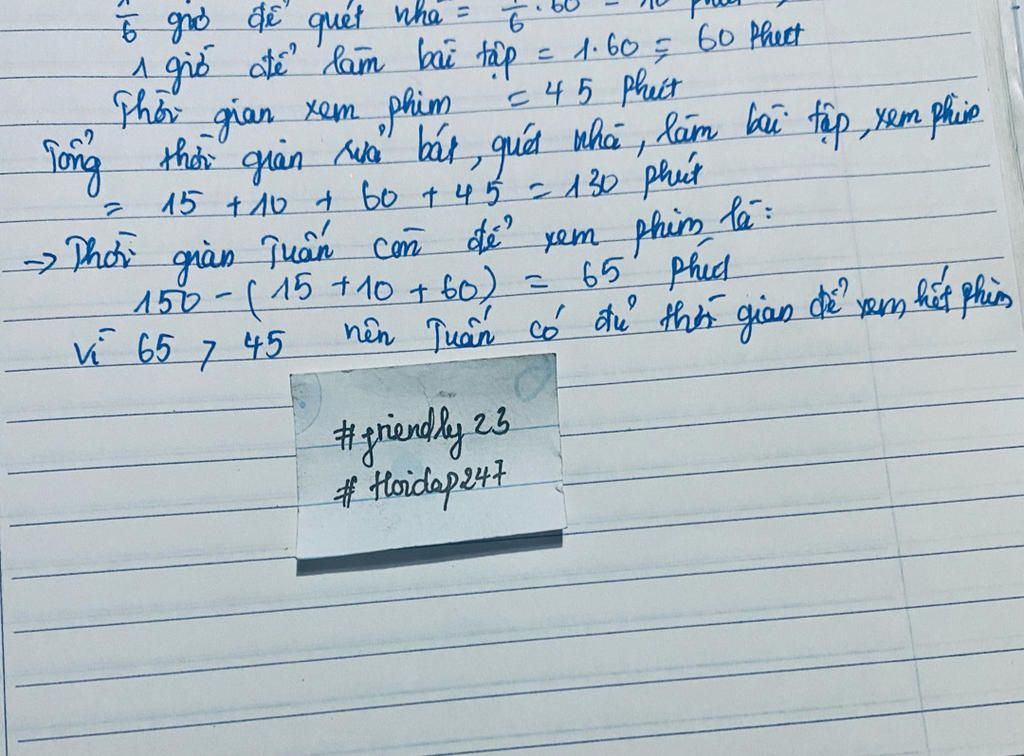 1/6 giờ để quét nhà = 1/6 . 60 = 10 phút
1 giờ để làm bài tập = 1.60 = 60 phút
Thời gian xem phim = 45 phút
Tổng thời gian rửa bát, quét nhà, làm bài tập, xem phim
= 15 + 10 + 60 + 45 = 130 phút
→ Thời gian Tuấn còn để xem phim là:
150 - (15 + 10 + 60) = 65 phút
Vì 65 > 45 nên Tuấn có đủ thời gian để xem hết phim
#friendly23
#Hoidap247